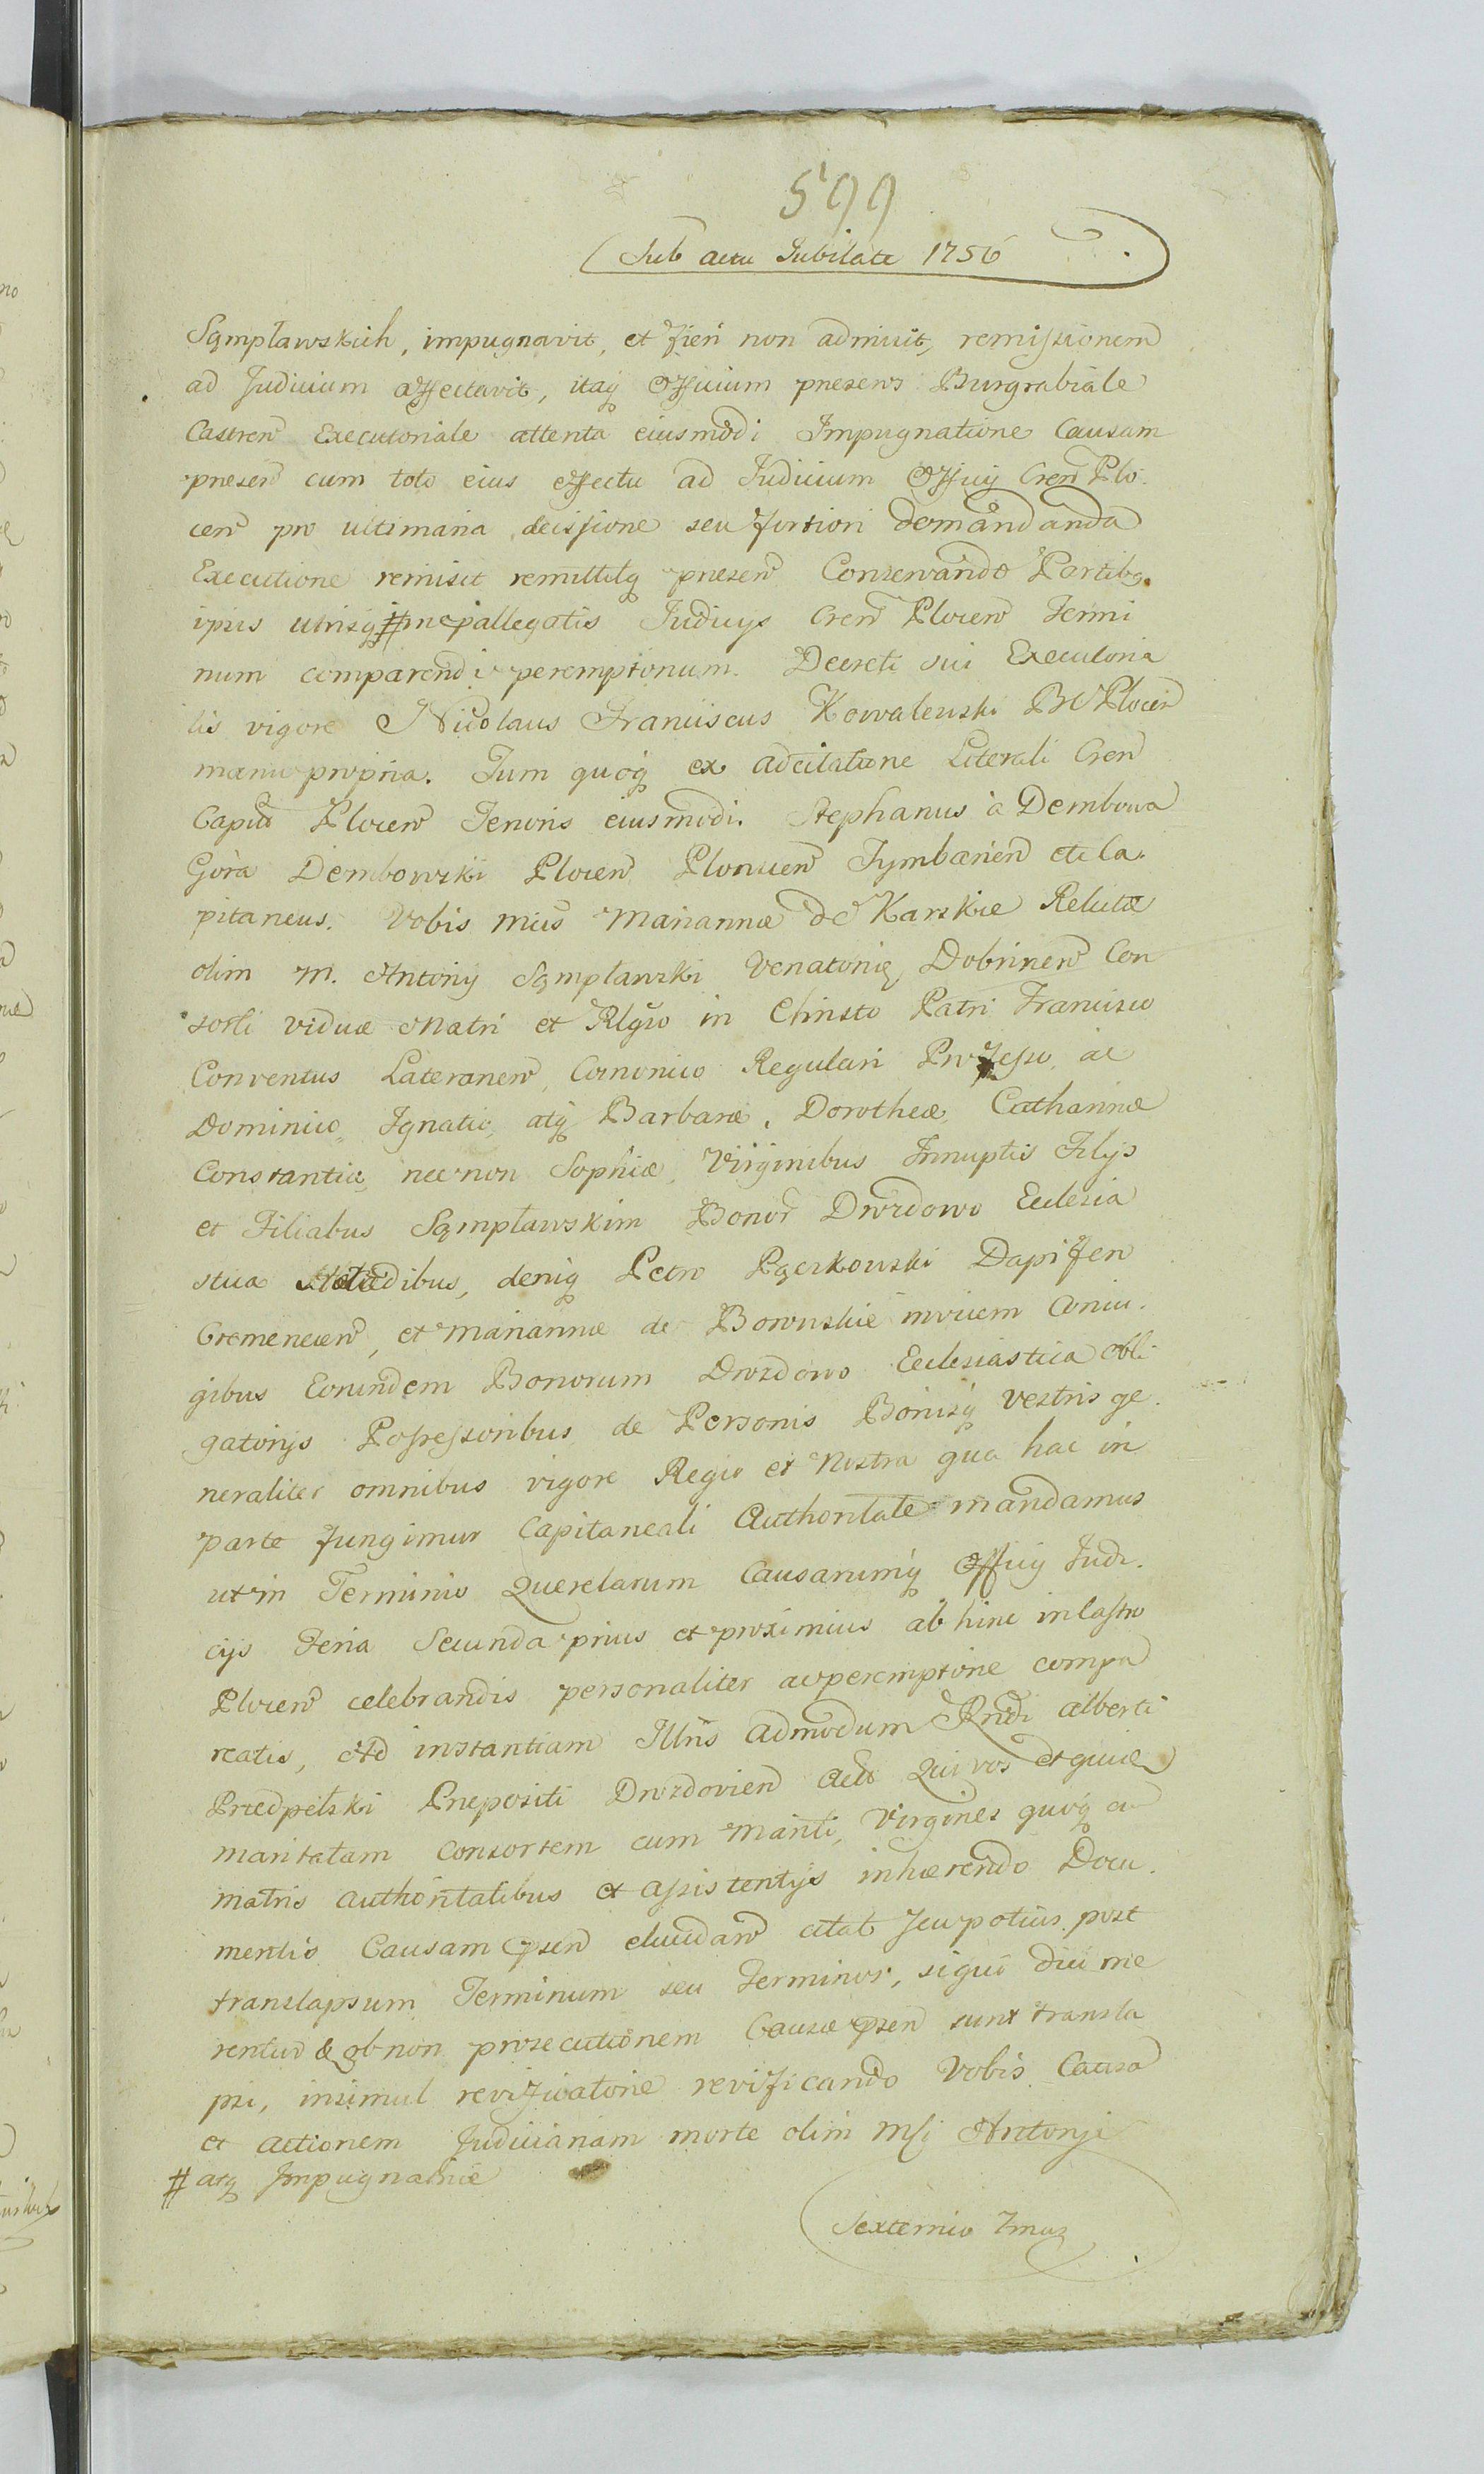 599
Sub actu Jubilate 1756
Sąmpławskich, impugnavit, et fieri non admisit, remissionem
ad Judicium affectavit, itaq Officium presens Burgrabiale
Castren Executoriale attenta eiusmodi Impugnatione Causam
presen cum toto eius effectu ad Judicium Officij Cren Plo
cen pro ultimaria decissione seu fortiori demandanda
Executione remisit remittitq presen Conservando Partibq
ipsis utrisq # prepallegatis Judicijs Cren Plocen Termi
num comparendi peremptorium. Decreti sui Executoria
lis vigore Nicolaus Franciscus Kowalewski BC Plocen
manu propria. Tum quoq ex adcitatione Literali Cren
Capit Plocen Tenoris eiusmodi. Stephanus à Dembowa
Góra Dembowski Plocen Plonscen Tymbarien etc Ca
pitaneus. Vobis Mcis Mariannæ de Karskie Relictæ
olim M. Antonij Sąmpławski Venatoris Dobrinen Con
sorti viduæ Matri et Rlgso in Christo Patri Francisco
Conventus Lateranen, Canonico Regulari Professo, ac
Dominico, Ignatio, atq Barbaræ, Dorotheæ, Catharinæ
Constantiæ, nec non Sophiæ, Virginibus Innuptis Filijs
et Filiabus Sąmpławskim Bonor Drozdowo Ecclesia
stica Hæredibus, deniq Petro Pączkowski Dapifero
Cremenecen, et Mariannæ de Borowskie invicem Coniu
gibus Eorundem Bonorum Drozdowo Ecclesiastica obli
gatorijs Possessoribus de Personis Bonisq vestris ge
neraliter omnibus vigore Regio et Nostra qua hac in
parte fungimur Capitaneali Authoritate mandamus
ut in Terminis Querelarum Causarumq Officij Judi
cijs Feria Secunda prius et proximius ab hinc in Castro
Plocen celebrandis personaliter ac peremptorie compa
reatis, Ad instantiam Illris Admodum Rndi Alberti
Przedpełski Prepositi Drozdovien Act Qui vos et quidem
maritatam Consortem cum Mariti, Virgines quoq cu
matris authoritatibus et assistentijs inhærendo Docu
mentis Causam psen elucidan citat seu potius post
translapsum Terminum seu Terminos, siqui dici me
rentur & ob non prosecutionem Causæ psen sunt transla
psi, insimul revificatorie revificando Vobis Causa
et actionem Judiciariam morte olim Msi Antonji
# atq Impugnatniæ
Sexternio Imus